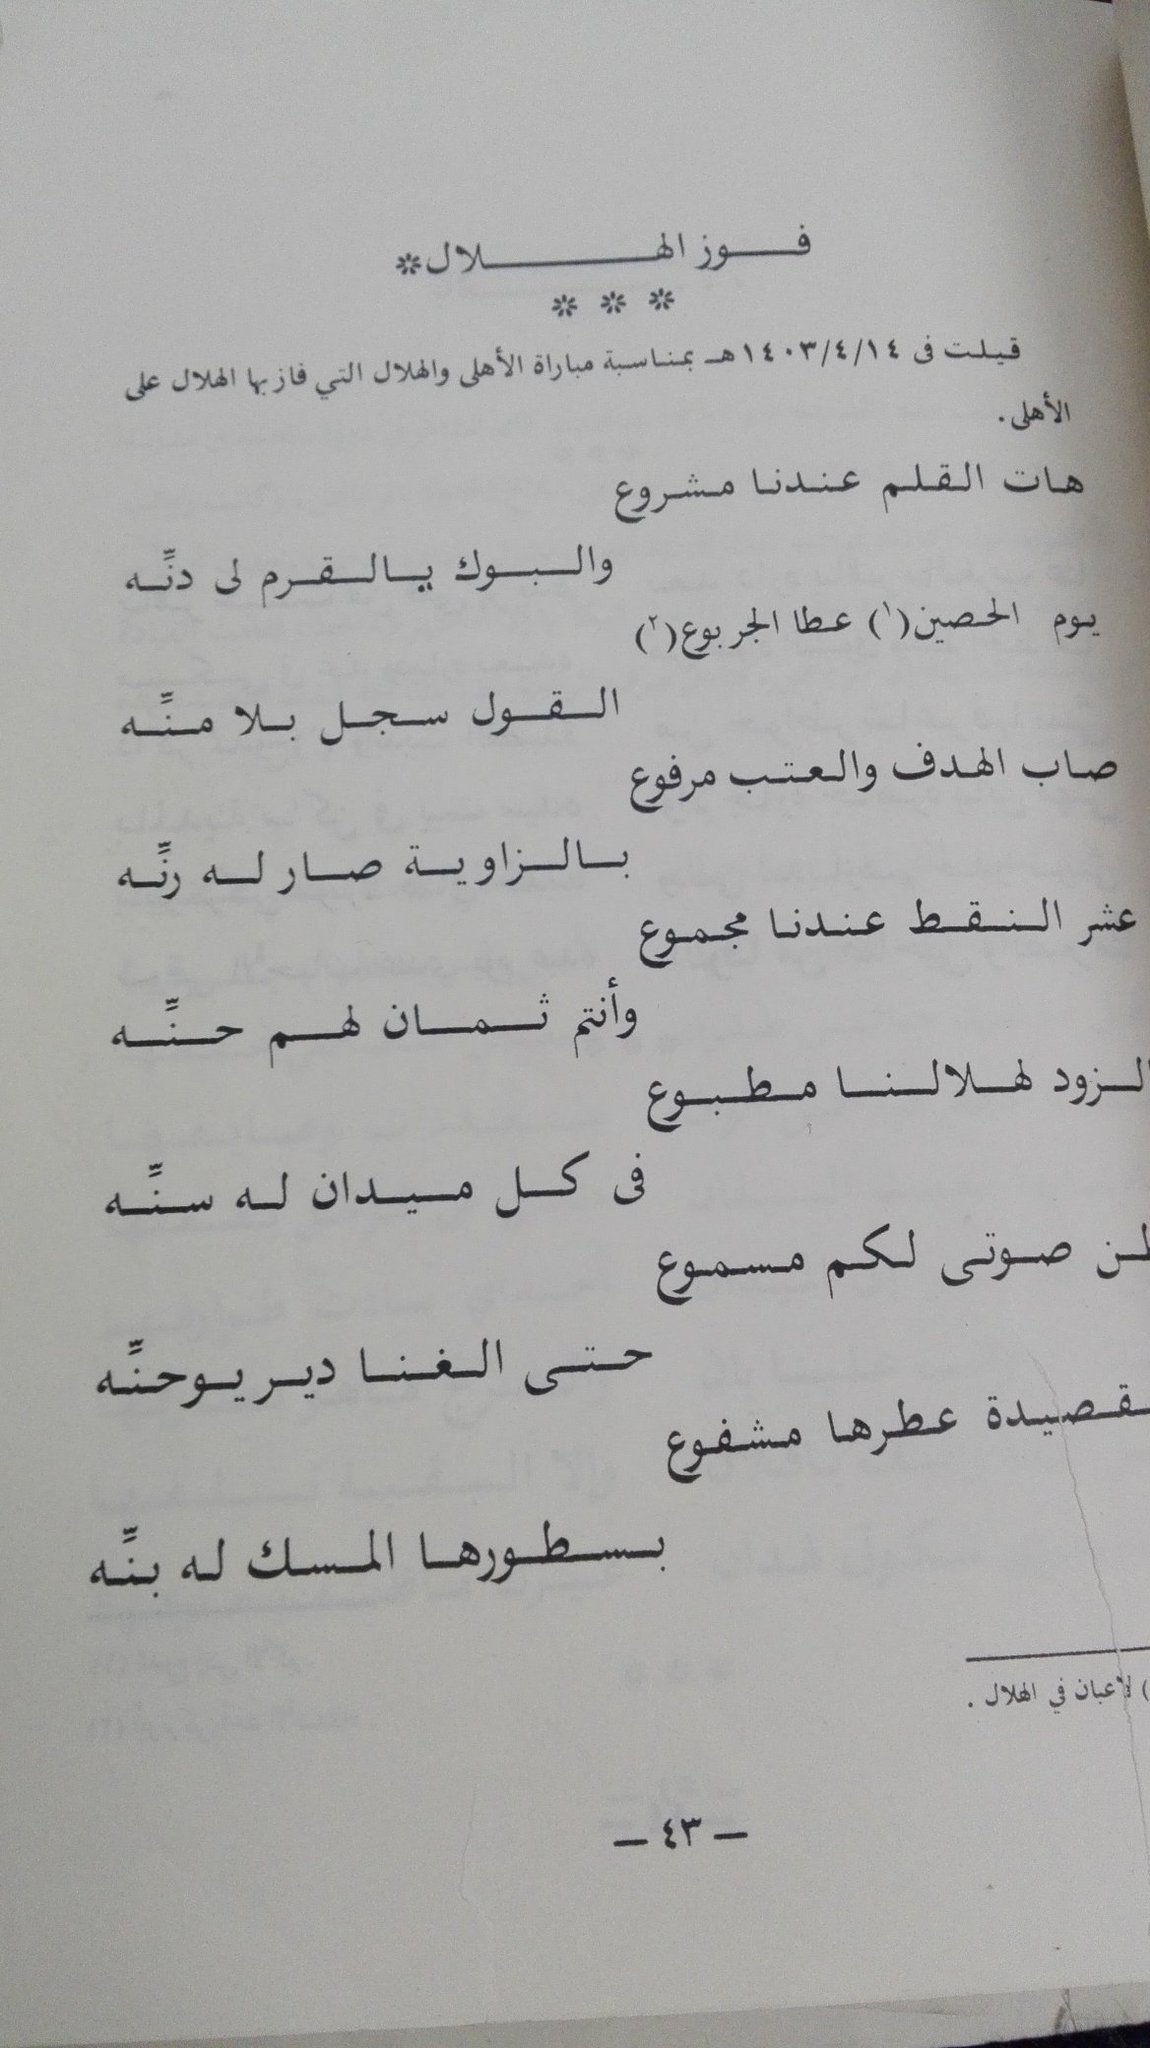 فوز الهلال*
* * *
قيلت فى ١٤٠٣/٤/١٤هـ بمناسبة مباراة الأهلى والهلال التي فازبها الهلال على
الأهلى.
هات القلم عندنا مشروع
والبوك يالقرم لى دنِّه
يوم الحصين(١) عطا الجربوع(٢)
القول سجل بلا منِّه
صاب الهدف والعتب مرفوع
بالزاوية صار له رنِّه
عشر النقط عندنا مجموع
وأنتم ثمان لهم حنِّه
الزود لهلالنا مطبوع
فى كل ميدان له سنِّه
صوتى لكم مسموع
حتى الغنا ديريوحنِّه
قصيدة عطرها مشفوع
بسطورها المسك له بنِّه
) لاعبان في الهلال .
— ٤٣ —